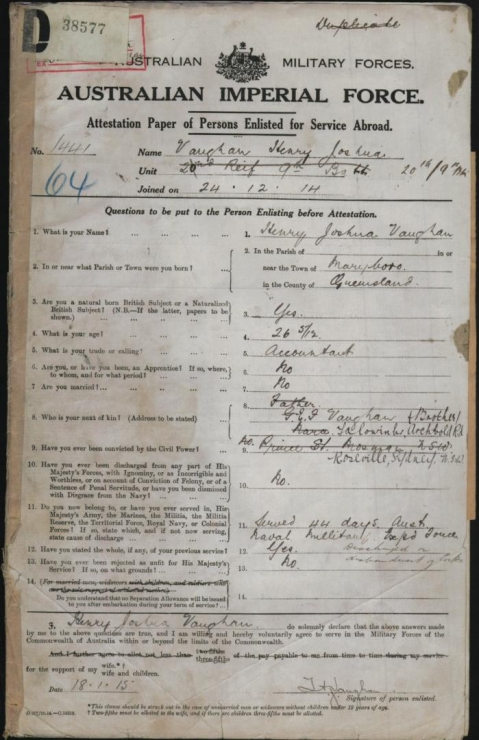 Duplicate
D 38577
AUSTRALIAN MILITARY FORCES.
AUSTRALIAN IMPERIAL FORCE.
Attestation Paper of Persons Enlisted for Service Abroad.
No. 1441 Name Vaughan Henry Joshua
64 Unit Reif 9th 20th/9th
Joined on 24.12.14
Questions to be put to the Person Enlisting before Attestation.
1. What is your Name? ... 1. Henry Joshua Vaughan
2. In or near what Parish or Town were you born? ... 2. In the Parish of in or
near the Town of Maryboro.
in the County of Queensland.
3. Are you a natural born British Subject or a Naturalized
British Subject? (N.B.—If the latter, papers to be
shown.) 3. Yes.
4. What is your age? 4. 26 5/12
5. What is your trade or calling? 5. Accountant
6. Are you, or have you been, an Apprentice? If so, where,
to whom, and for what period? 6. No
7. Are you married? 7. No
8. Who is your next of kin? (Address to be stated) 8. Father
Vaughan (Brother)
Archbold Rd
Prince St. Mosman N.S.W
Roseville, Sydney, N.S.W
9. Have you ever been convicted by the Civil Power? ... 9. No.
10. Have you ever been discharged from any part of His
Majesty's Forces, with Ignominy, or as Incorrigible and
Worthless, or on account of Conviction of Felony, or of a
Sentence of Penal Servitude, or have you been dismissed
with Disgrace from the Navy? 10. No.
11. Do you now belong to, or have you ever served in, His
Majesty's Army, the Marines, the Militia, the Militia
Reserve, the Territorial Force, Royal Navy, or Colonial
Forces? If so, state which, and if not now serving,
state cause of discharge 11. Served 44 days, Aust.
Naval Military Exped Force
Discharged on
disbandment of
12. Have you stated the whole, if any, of your previous service? 12. Yes.
13. Have you ever been rejected as unfit for His Majesty's
Service? If so, on what grounds? 13. No.
14. (For married men, widowers with children, and
Do you understand that no Separation Allowance will be issued
to you after embarkation during your term of service? 14.
I, Henry Joshua Vaughan do solemnly declare that the above answers made
by me to the above questions are true, and I am willing and hereby voluntarily agree to serve in the Military Forces of the
Commonwealth of Australia within or beyond the limits of the Commonwealth.
And I further agree to allot not less than two-fifths
three-fifths of the pay payable to me from time to time during my service
for the support of my wife.*†
wife and children.
Date 18.1.15 Vaughan
Signature of person enlisted.
*This clause should be struck out in the case of unmarried men or widowers without children under 18 years of age.
†Two-fifths must be allotted to the wife, and if there are children three-fifths must be allotted.